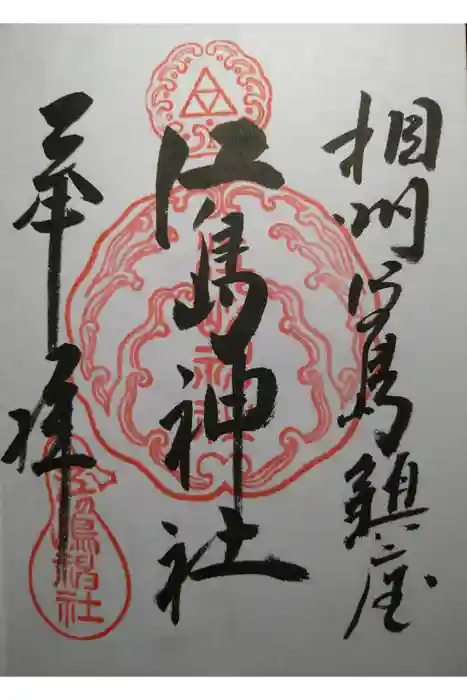 相州江島鎮座
江島神社
奉拝
江島神社